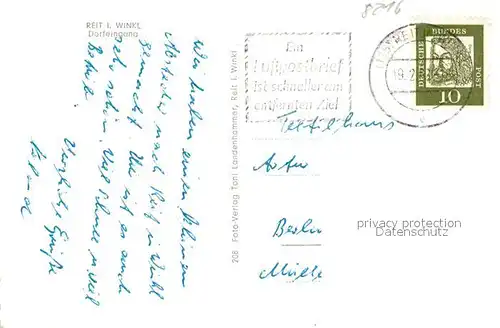 REIT I. WINKL
Dorfeingang
Wir haben einen kleinen
Abstecher nach Reit im Winkl
gemacht. Hier ist es auch
sehr schön. Viel Schnee u. viel
Betrieb.
Herzliche Grüße
208 Foto-Verlag Toni Landenhammer, Reit i. Winkl
Ein
Luftpostbrief
ist schneller am
entfernten Ziel
8216
19.2
DEUTSCHE BUNDESPOST
10
Textilhaus
Berlin
privacy protection
Datenschutz